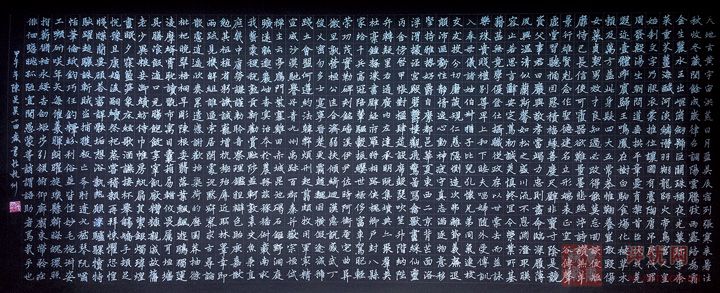 天地玄黃宇宙洪荒日月盈昃辰宿列張寒來暑往
秋收冬藏閏餘成歲律呂調陽雲騰致雨露結為霜
金生麗水玉出崑岡劍號巨闕珠稱夜光果珍李柰
菜重芥薑海鹹河淡鱗潛羽翔龍師火帝鳥官人皇
始制文字乃服衣裳推位讓國有虞陶唐弔民伐罪
周發殷湯坐朝問道垂拱平章愛育黎首臣伏戎羌
遐邇壹體率賓歸王鳴鳳在樹白駒食場化被草木
賴及萬方蓋此身髮四大五常恭惟鞠養豈敢毀傷
女慕貞絜男效才良知過必改得能莫忘罔談彼短
靡恃己長信使可覆器欲難量墨悲絲染詩讚羔羊
景行維賢剋念作聖德建名立形端表正空谷傳聲
虛堂習聽禍因惡積福緣善慶尺璧非寶寸陰是競
資父事君曰嚴與敬孝當竭力忠則盡命臨深履薄
夙興溫凊似蘭斯馨如松之盛川流不息淵澄取映
容止若思言辭安定篤初誠美慎終宜令榮業所基
籍甚無竟學優登仕攝職從政存以甘棠去而益詠
樂殊貴賤禮別尊卑上和下睦夫唱婦隨外受傅訓
入奉母儀諸姑伯叔猶子比兒孔懷兄弟同氣連枝
交友投分切磨箴規仁慈隱惻造次弗離節義廉退
顛沛匪虧性靜情逸心動神疲守真志滿逐物意移
堅持雅操好爵自縻都邑華夏東西二京背邙面洛
浮渭據涇宮殿盤鬱樓觀飛驚圖寫禽獸畫彩仙靈
丙舍傍啟甲帳對楹肆筵設席鼓瑟吹笙升階納陛
弁轉疑星右通廣內左達承明既集墳典亦聚群英
杜稿鍾隸漆書壁經府羅將相路俠槐卿戶封八縣
家給千兵高冠陪輦驅轂振纓世祿侈富車駕肥輕
策功茂實勒碑刻銘磻溪伊尹佐時阿衡奄宅曲阜
微旦孰營桓公匡合濟弱扶傾綺迴漢惠說感武丁
俊乂密勿多士寔寧晉楚更霸趙魏困橫假途滅虢
踐土會盟何遵約法韓弊煩刑起翦頗牧用軍最精
宣威沙漠馳譽丹青九州禹跡百郡秦并嶽宗恆岱
禪主云亭雁門紫塞雞田赤城昆池碣石鉅野洞庭
曠遠綿邈巖岫杳冥治本於農務茲稼穡俶載南畝
我藝黍稷稅熟貢新勸賞黜陟孟軻敦素史魚秉直
庶幾中庸勞謙謹敕聆音察理鑑貌辨色貽厥嘉猷
勉其祗植省躬譏誡寵增抗極殆辱近恥林皋幸即
兩疏見機解組誰逼索居閒處沉默寂寥求古尋論
散慮逍遙欣奏累遣慼謝歡招渠荷的歷園莽抽條
枇杷晚翠梧桐早凋陳根委翳落葉飄颻遊鵾獨運
凌摩絳霄耽讀翫市寓目囊箱易輶攸畏屬耳垣牆
具膳餐飯適口充腸飽飫烹宰飢厭糟糠親戚故舊
老少異糧妾御績紡侍巾帷房紈扇圓潔銀燭煒煌
晝眠夕寐藍筍象床弦歌酒讌接杯舉觴矯手頓足
悅豫且康嫡後嗣續祭祀烝嘗稽顙再拜悚懼恐惶
牋牒簡要顧答審詳骸垢想浴執熱願涼驢騾犢特
駭躍超驤誅斬賊盜捕獲叛亡布射僚丸嵇琴阮嘯
恬筆倫紙鈞巧任釣釋紛利俗並皆佳妙毛施淑姿
工顰妍笑年矢每催曦暉朗曜璇璣懸斡晦魄環照
指薪修祜永綏吉劭矩步引領俯仰廊廟束帶矜莊
徘徊瞻眺孤陋寡聞愚蒙等誚謂語助者焉哉乎也
甲午年陳